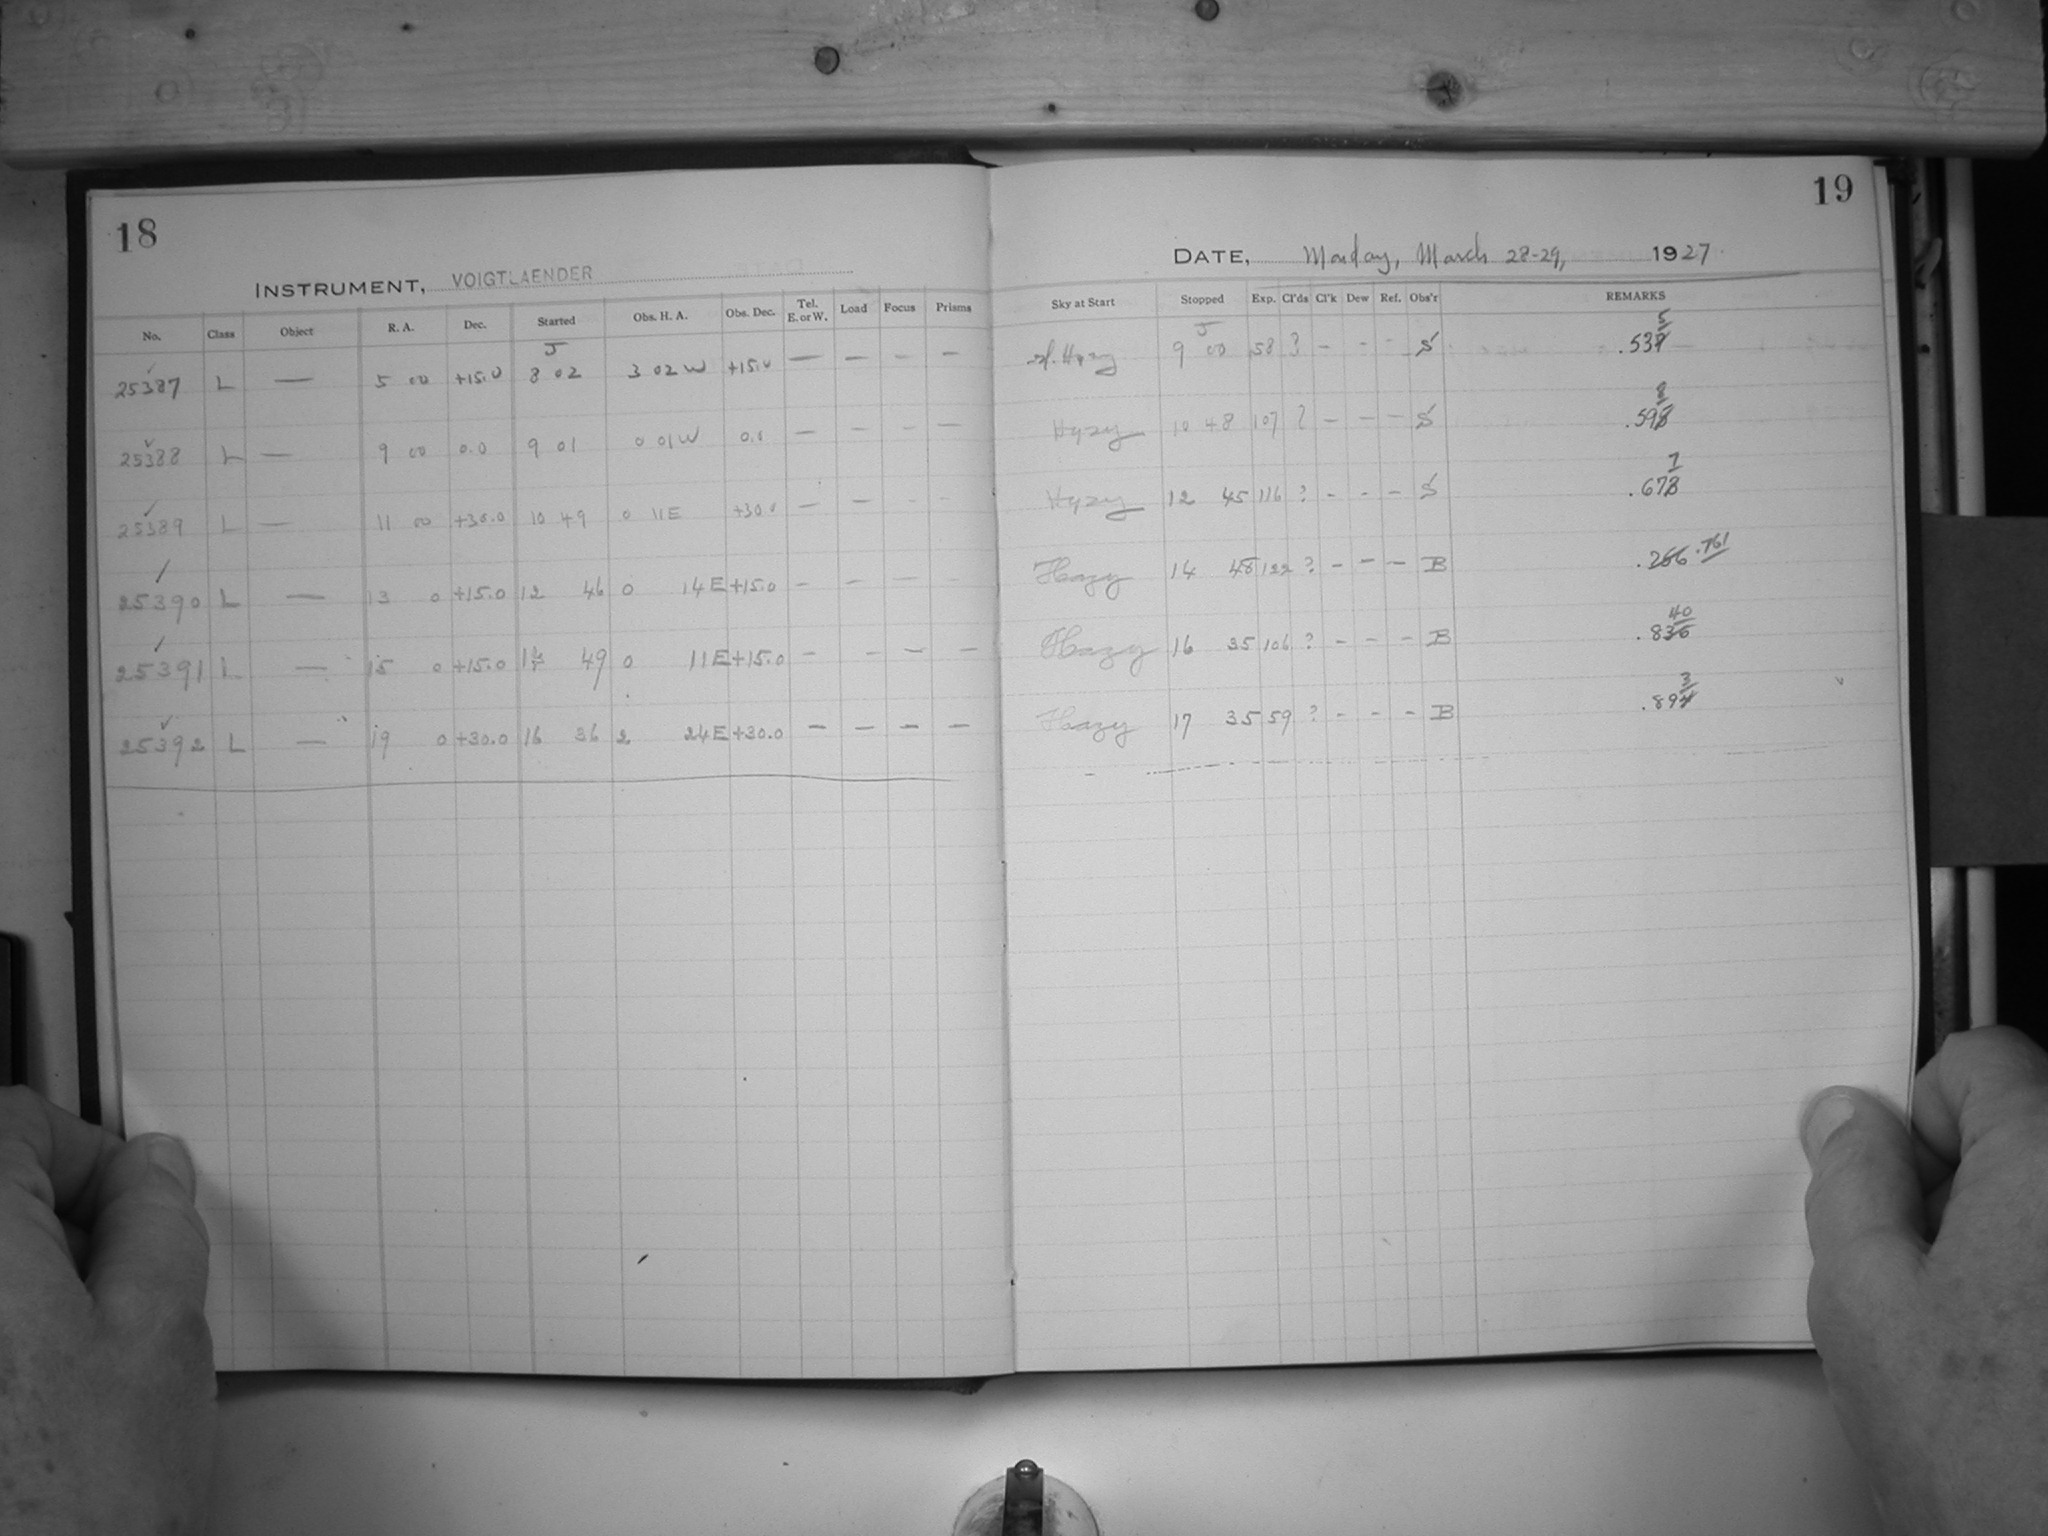 18
INSTRUMENT, VOIGTLAENDER
No. Class Object R. A. Dec. Started Obs. H. A. Obs. Dec. Tel. E. or W. Load Focus Prisms
J
25387 L — 5 00 +15.0 8 02 3 02 W +15.0 — — — —
25388 L — 9 00 0.0 9 01 0 01 W 0.0 — — — —
25389 L — 11 00 +30.0 10 49 0 11 E +30.0 — — - -
25390 L — 13 0 +15.0 12 46 0 14 E +15.0 — — —
25391 L — 15 0 +15.0 14 49 0 11 E +15.0 — — — —
25392 L — 19 0 +30.0 16 36 2 24 E +30.0 — — — —
19
DATE, Monday, March 28-29, 1927
Sky at Start Stopped Exp. Cl'ds Cl'k Dew Ref. Obs'r REMARKS
J 5
sl. Hazy 9 00 58 ? - - - S .537
8
Hazy 10 48 107 ? - - - S .598
7
Hazy 12 45 116 ? - - - S .678
Hazy 14 48 122 ? - - - B .766 .761
40
Hazy 16 35 106 ? - - - B .836
3
Hazy 17 35 59 ? - - - B .894